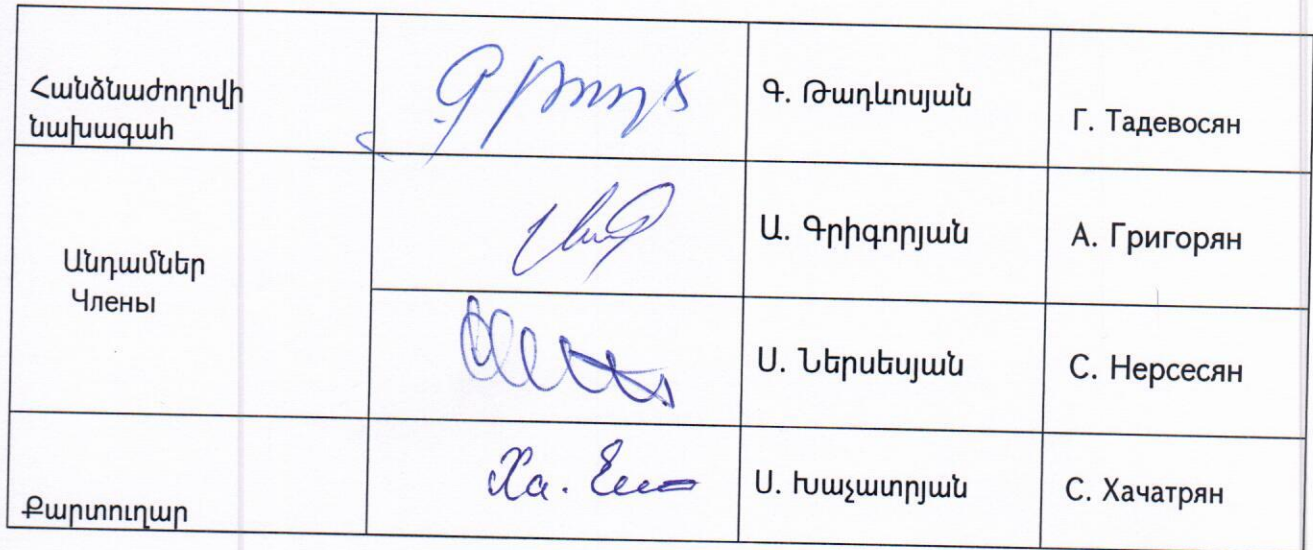 Հանձնաժողովի
նախագահ
Գ. Թադևոսյան
Г. Тадевосян
Անդամներ
Члены
Ա. Գրիգորյան
А. Григорян
Ս. Ներսեսյան
С. Нерсесян
Քարտուղար
Ս. Խաչատրյան
С. Хачатрян